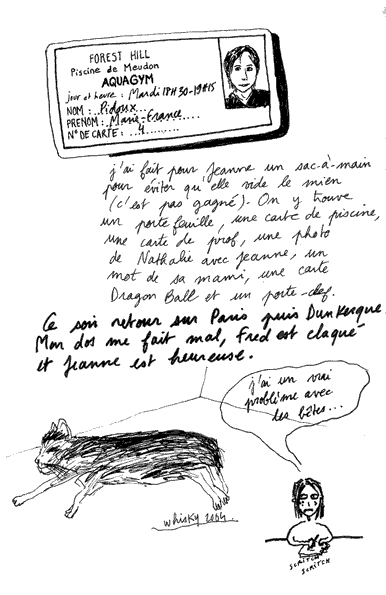 FOREST HILL
Piscine de Meudon
AQUAGYM
jour et heure : Mardi 18H30-19H15
NOM : ..Pidoux...
PRENOM : Marie-France.....
N° DE CARTE : ..4.........
j'ai fait pour Jeanne un sac-à-main
pour éviter qu'elle vide le mien
(c'est pas gagné). On y trouve
un porte feuille, une carte de piscine,
une carte de prof, une photo
de Nathalie avec Jeanne, un
mot de sa mami, une carte
Dragon Ball et un porte-clef.
Ce soir retour sur Paris puis Dunkerque
Mon dos me fait mal, Fred est claqué
et Jeanne est heureuse.
j'ai un vrai
problème avec
les bêtes...
whisky 2004.
SCRITCH
SCRITCH